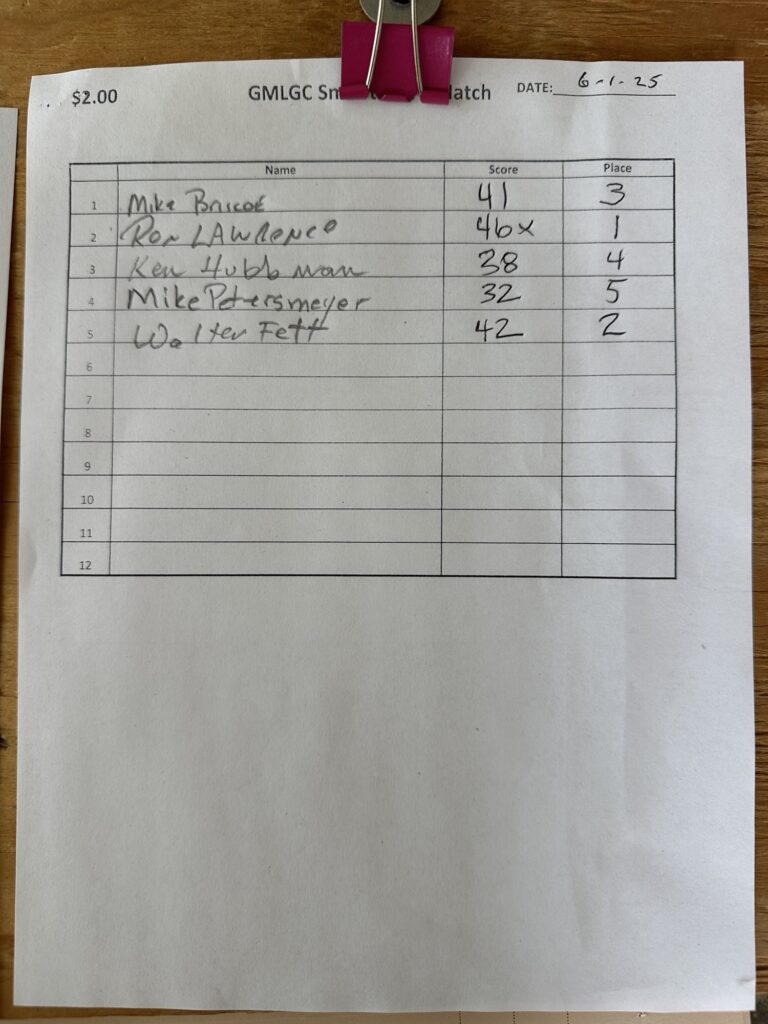 $2.00 GMLGC DATE: 6-1-25
Name Score Place
1 Mike Briscoe 41 3
2 Ron LAWRence 46x 1
3 Ken Hubbman 38 4
4 Mike Petersmeyer 32 5
5 Walter Fett 42 2
6
7
8
9
10
11
12